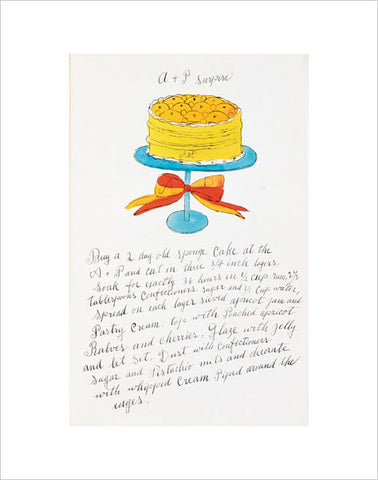 A + P surprise
A+P
Buy a 2 day old sponge cake at the
A + P and cut in three 3/4 inch layers.
Soak for exactly 36 hours in 1/2 cup rum, 2 1/2
tablespoons confectioners sugar and 1/2 cup water,
spread on each layer sieved apricot jam and
Pastry Cream. tops with Poached apricot
Halves and cherries. Glaze with jelly
and let set. Dust with confectioners
sugar and Pistachio nuts and decorate
with whipped Cream Piped around the
edges.